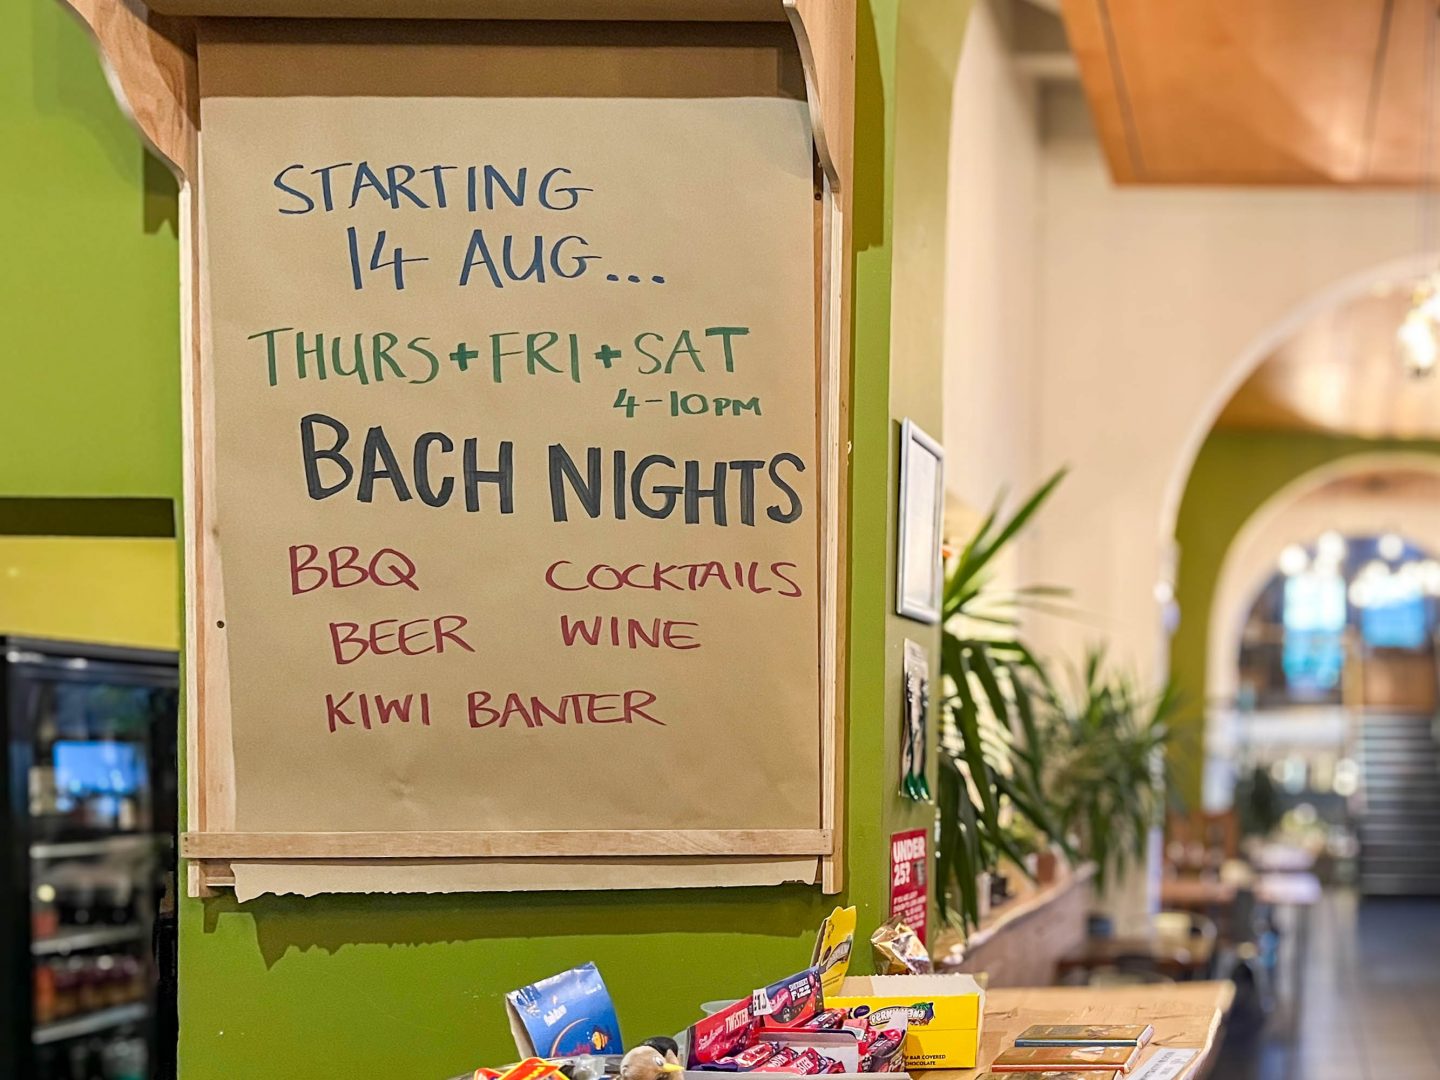 STARTING
14 AUG...
THURS + FRI + SAT
4-10PM
BACH NIGHTS
BBQ COCKTAILS
BEER WINE
KIWI BANTER
UNDER
25?
TWISTER
BAR COVERED
CHOCOLATE